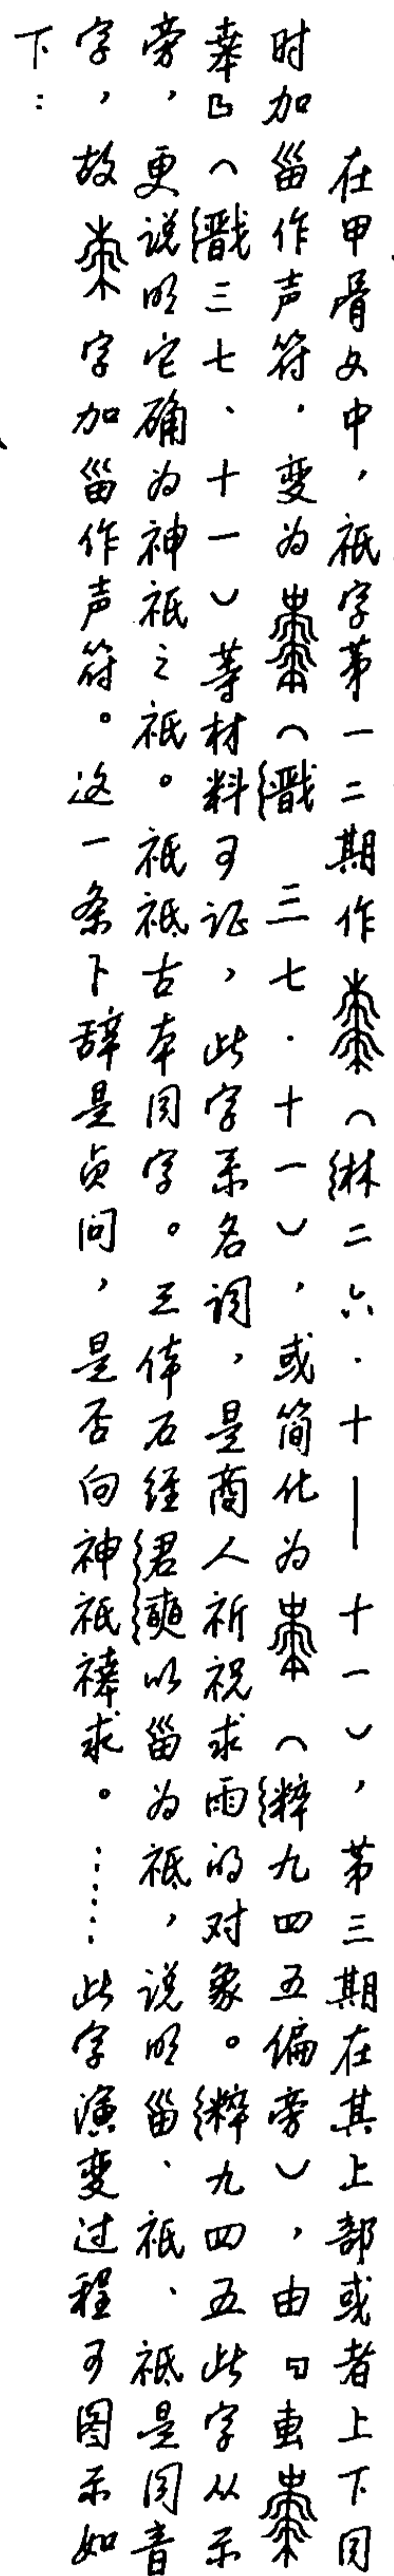 在甲骨文中，祇字第一二期作（綝二六·十——十一），第三期在其上部或者上下同
时加甾作声符，变为（戬三七·十一），或简化为（粹九四五偏旁），由曰叀
𠦪（戬三七、十一）等材料可证，此字系名词，是商人祈祝求雨的对象。粹九四五此字从示
旁，更说明它确为神祇之祇。祇祗古本同字。三体石经君奭以甾为祗，说明甾、祇、祗是同音
字，故字加甾作声符。这一条卜辞是贞问，是否向神祇祷求。……此字演变过程可图示如
下：